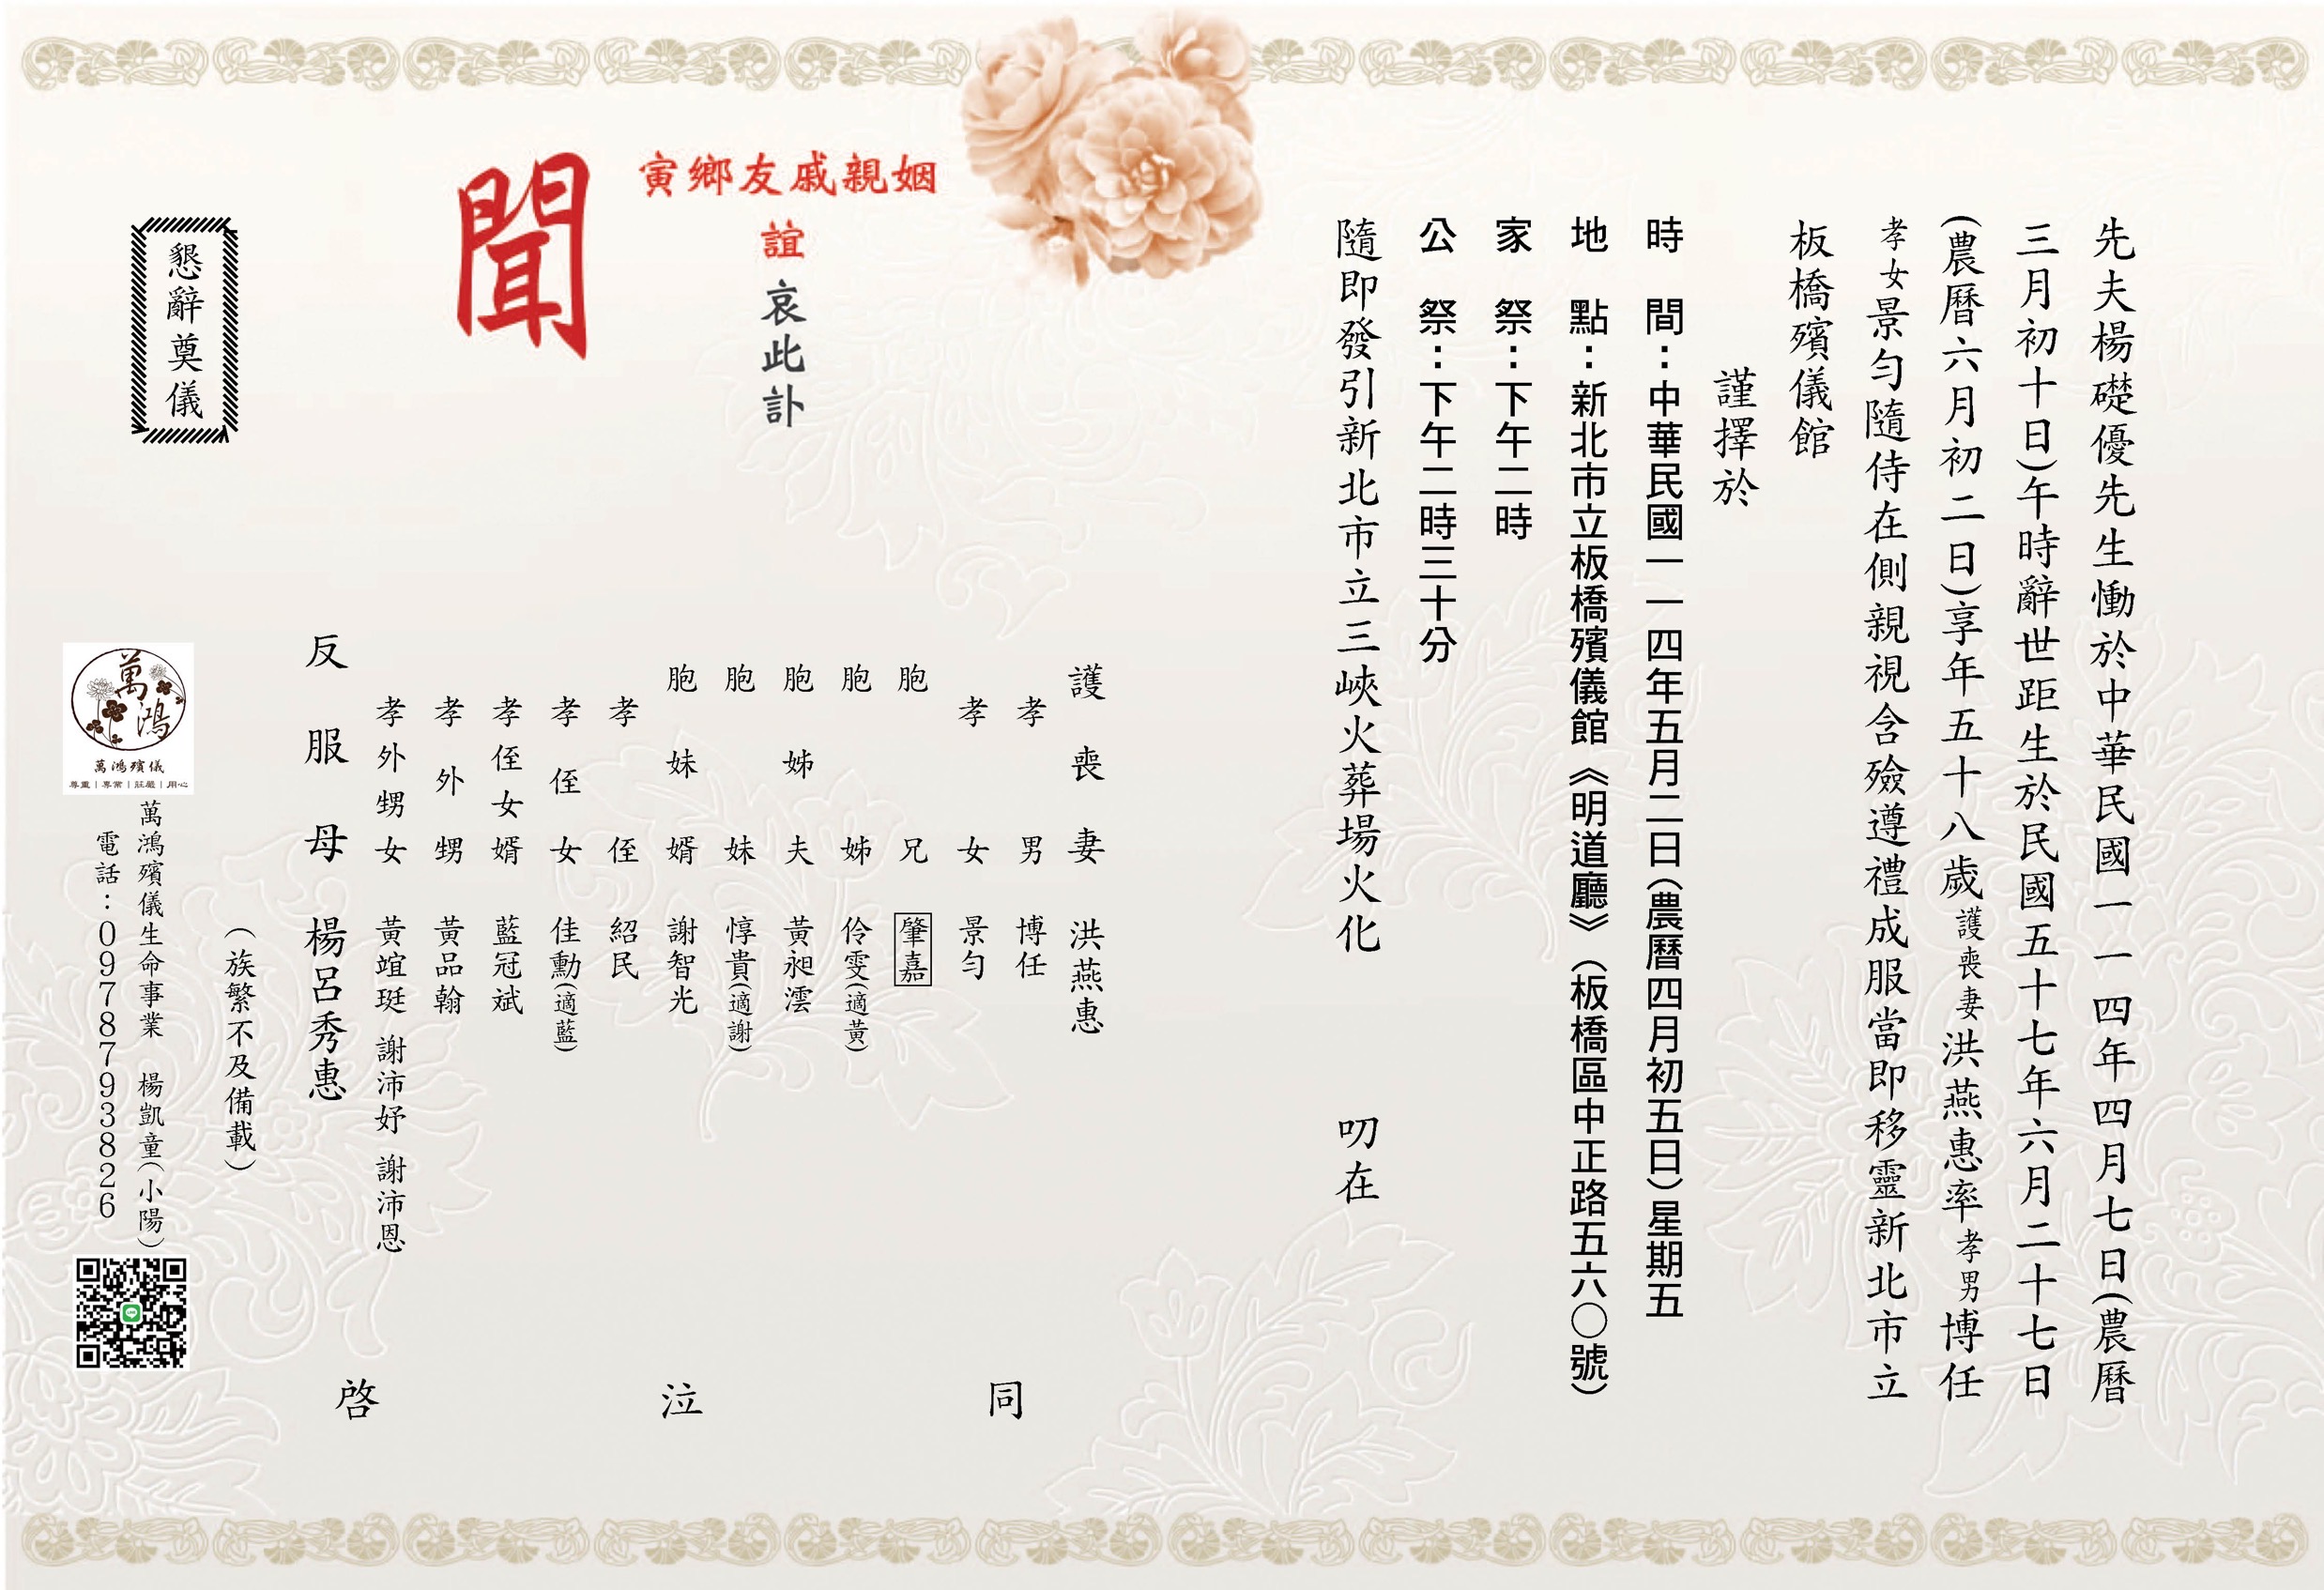 先夫楊礎優先生慟於中華民國一一四年四月七日(農曆
三月初十日)午時辭世距生於民國五十七年六月二十七日
(農曆六月初二日)享年五十八歲護喪妻洪燕惠率孝男博任
孝女景勻隨侍在側親視含殮遵禮成服當即移靈新北市立
板橋殯儀館
謹擇於
時　間：中華民國一一四年五月二日(農曆四月初五日)星期五
地　點：新北市立板橋殯儀館《明道廳》(板橋區中正路五六○號)
家　祭：下午二時
公　祭：下午二時三十分
隨即發引新北市立三峽火葬場火化　叨在
姻親戚友鄉寅
誼
哀此訃
聞
護喪妻　洪燕惠
孝男　博任
孝女　景勻
胞兄　肇嘉
胞姊　伶雯(適黃)
胞姊夫　黃昶澐
胞妹　惇貴(適謝)
胞妹婿　謝智光
孝侄　紹民
孝侄女　佳勳(適藍)
孝侄女婿　藍冠斌
孝外甥　黃品翰
孝外甥女　黃竩珽　謝沛妤　謝沛恩
反服母　楊呂秀惠
同　泣　啓
(族繁不及備載)
懇辭奠儀
萬鴻
萬鴻殯儀
尊重｜專業｜莊嚴｜用心
萬鴻殯儀生命事業　楊凱童(小陽)
電話：0978793826